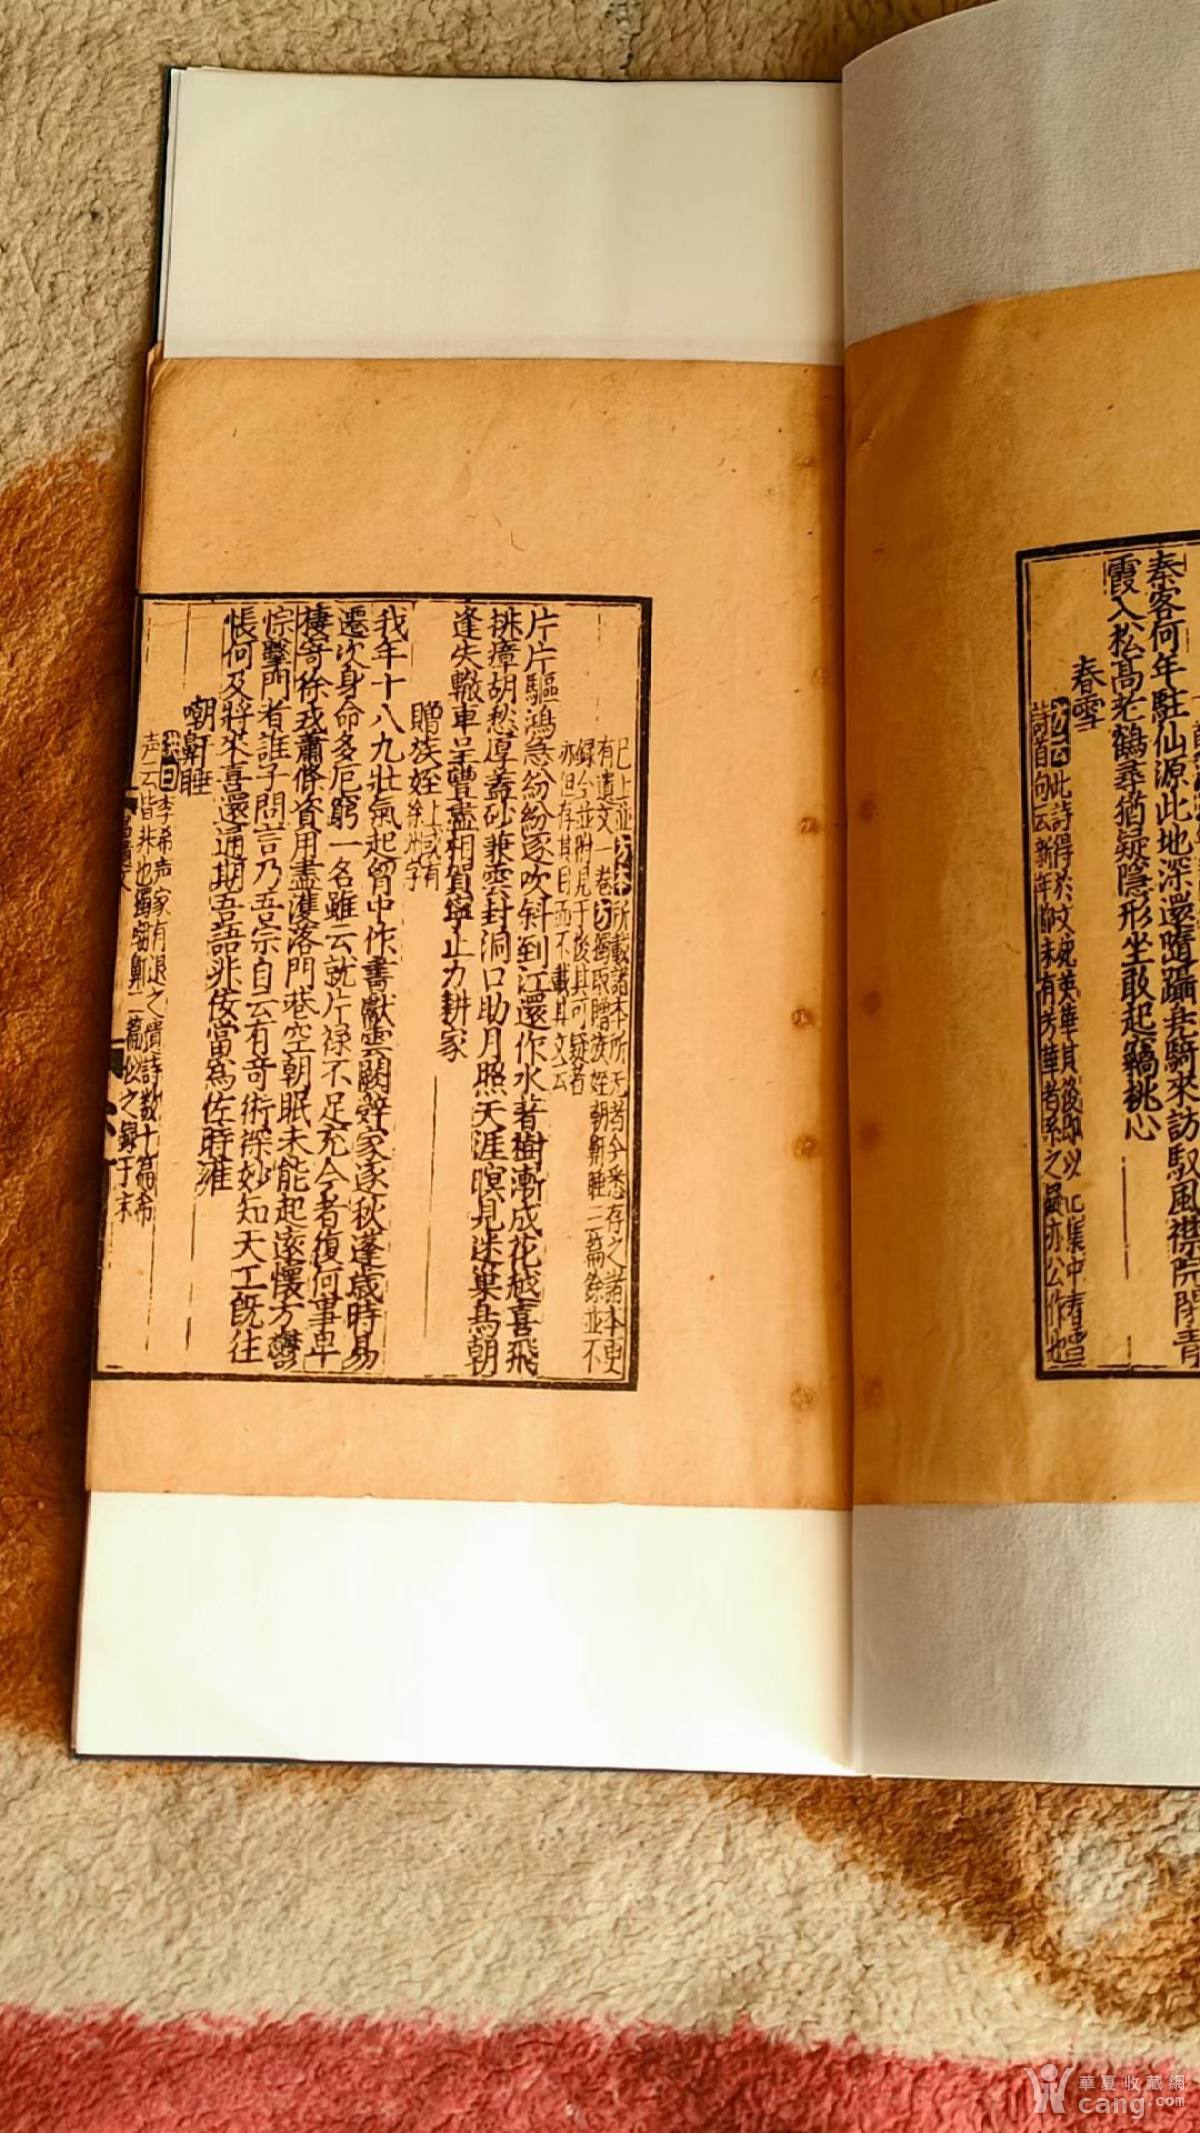 秦客何年駐仙源此地深還隨躡鳧騎來訪馭風襟院閉青
霞入松高老鶴尋猶疑隱形坐敢起竊桃心
春雪
方云此詩得於文苑英華其後即以此集中春雪
詩首句云新年都未有芳華者系之疑亦公作也
片片驅鴻急紛紛逐吹斜到江還作水著樹漸成花越喜飛
排瘴胡愁厚蓋砂兼雲封洞口助月照天涯暝見迷巢鳥朝
逢失轍車呈豐盡相賀寧止力耕家
已上並方本所載諸本所无者今悉存之諸本更
有遺文一卷方獨取贈族姪嘲鼾睡二篇餘並不
録今並附見于後其可疑者
亦但存其目而不載其文云
贈族姪
上或有
徐州字
我年十八九壯氣起胷中作書獻雲闕辭家逐秋蓬歲時易
遷次身命多厄窮一名雖云就片禄不足充今者復何事卑
棲寄徐戎蕭條資用盡濩落門巷空朝眠未能起遠懷方鬱
悰擊門者誰子問言乃吾宗自云有奇術探妙知天工既往
悵何及將來喜還通期吾語非佞當為佐時雍
嘲鼾睡
洪曰李希声家有退之遺詩数十篇希
声云皆非也獨嘲鼾二篇似之録于末
華夏收藏網
cang.com